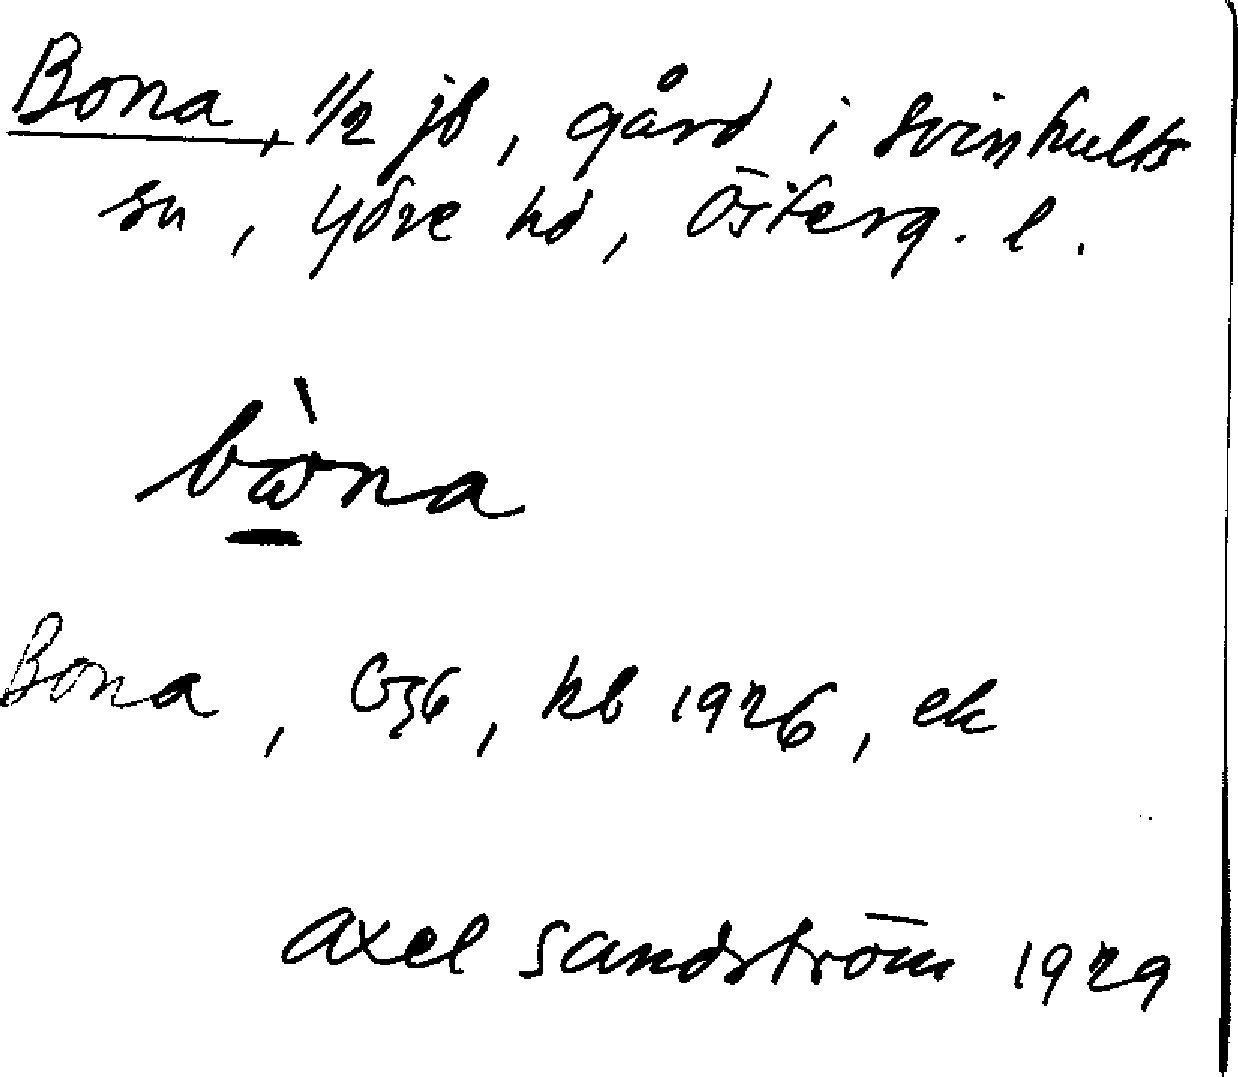 Bona, 1/2 jb, gård i Svinhults
sn, Ydre hd, Österg. l.
bòna
Bona, Gsb, kb 1926, ek
Axel Sandström 1929